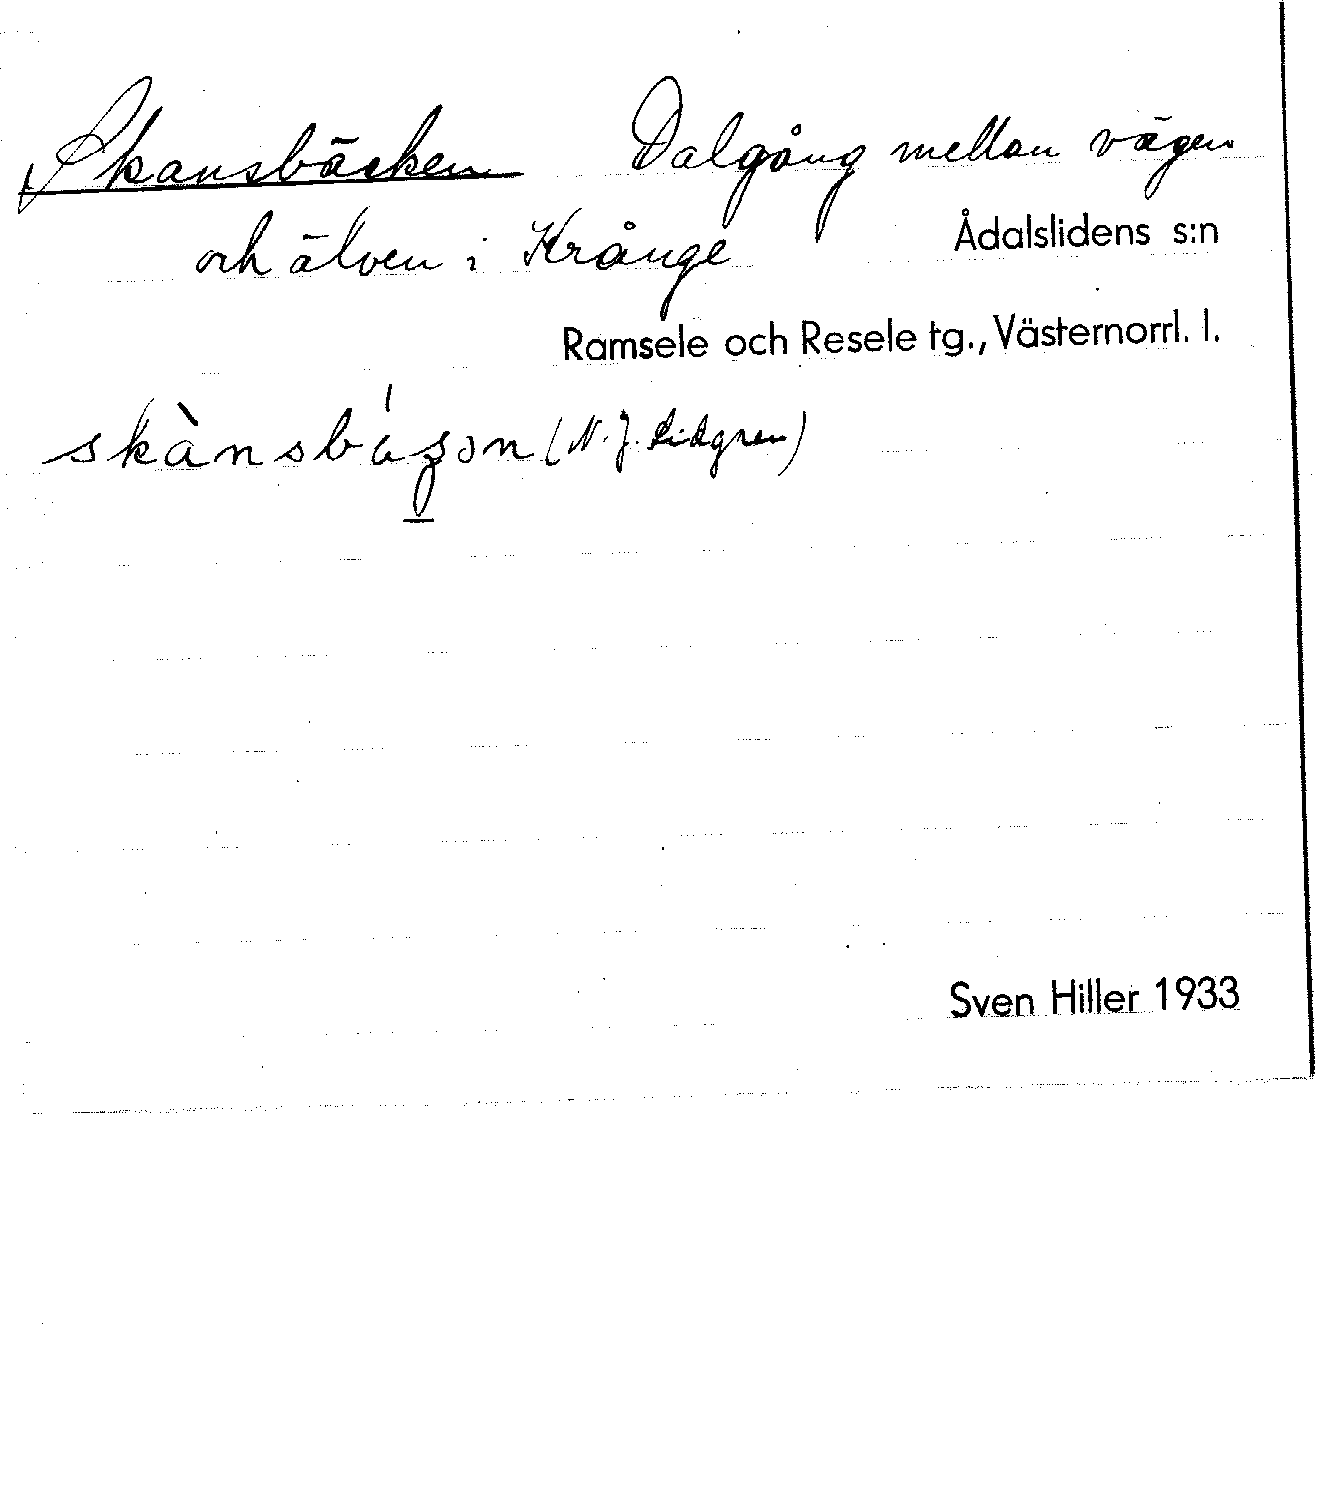 Skansbäcken Dalgång mellan vägen
och älven i Krånge Ådalslidens s:n
Ramsele och Resele tg., Västernorrl. l.
(N. J. Lidgren)
Sven Hiller 1933